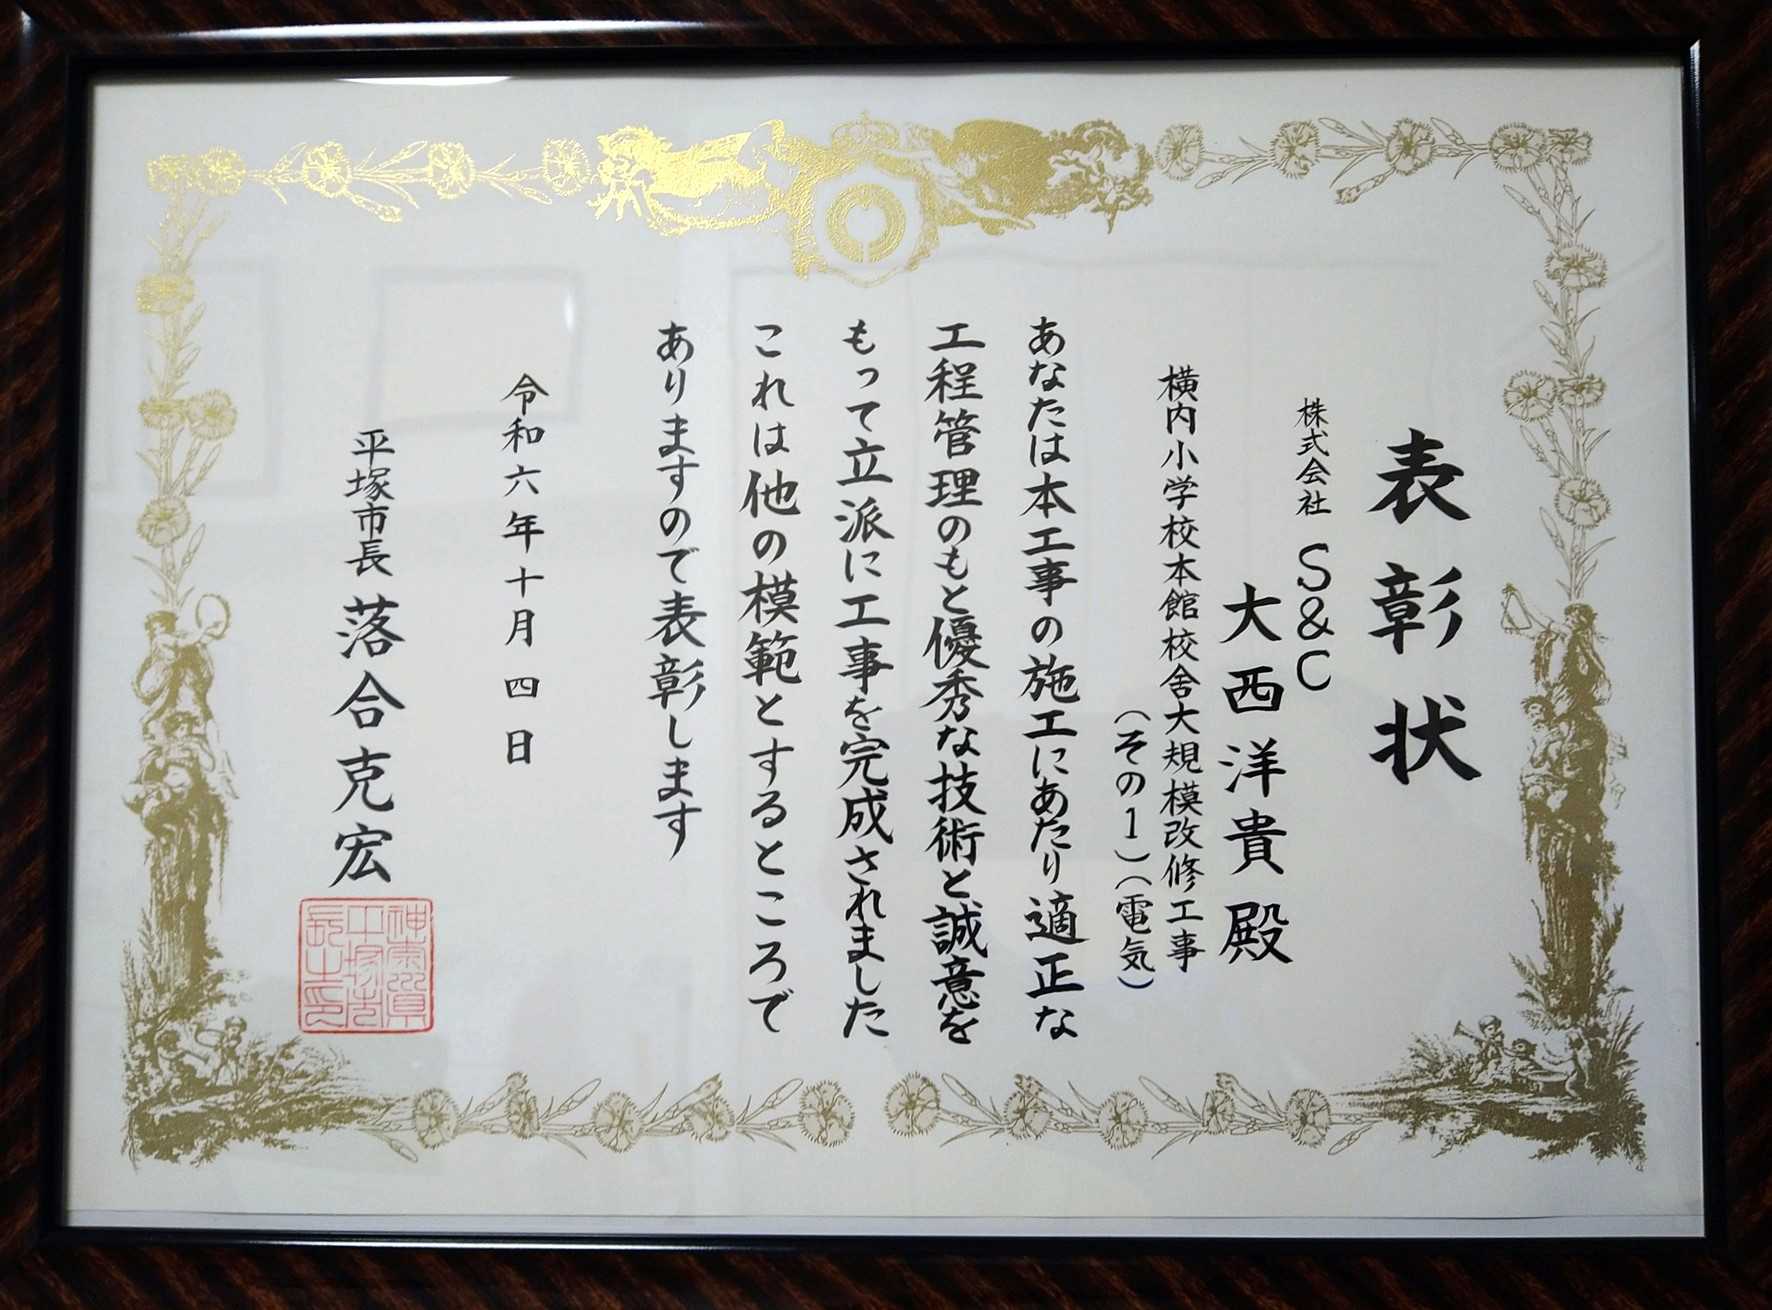 表彰状
株式会社 S&C
大西洋貴殿
横内小学校本館校舎大規模改修工事
(その1)(電気)
あなたは本工事の施工にあたり適正な
工程管理のもと優秀な技術と誠意を
もって立派に工事を完成されました
これは他の模範とするところで
ありますので表彰します
令和六年十月四日
平塚市長 落合克宏
神奈川県
平塚市
長之印